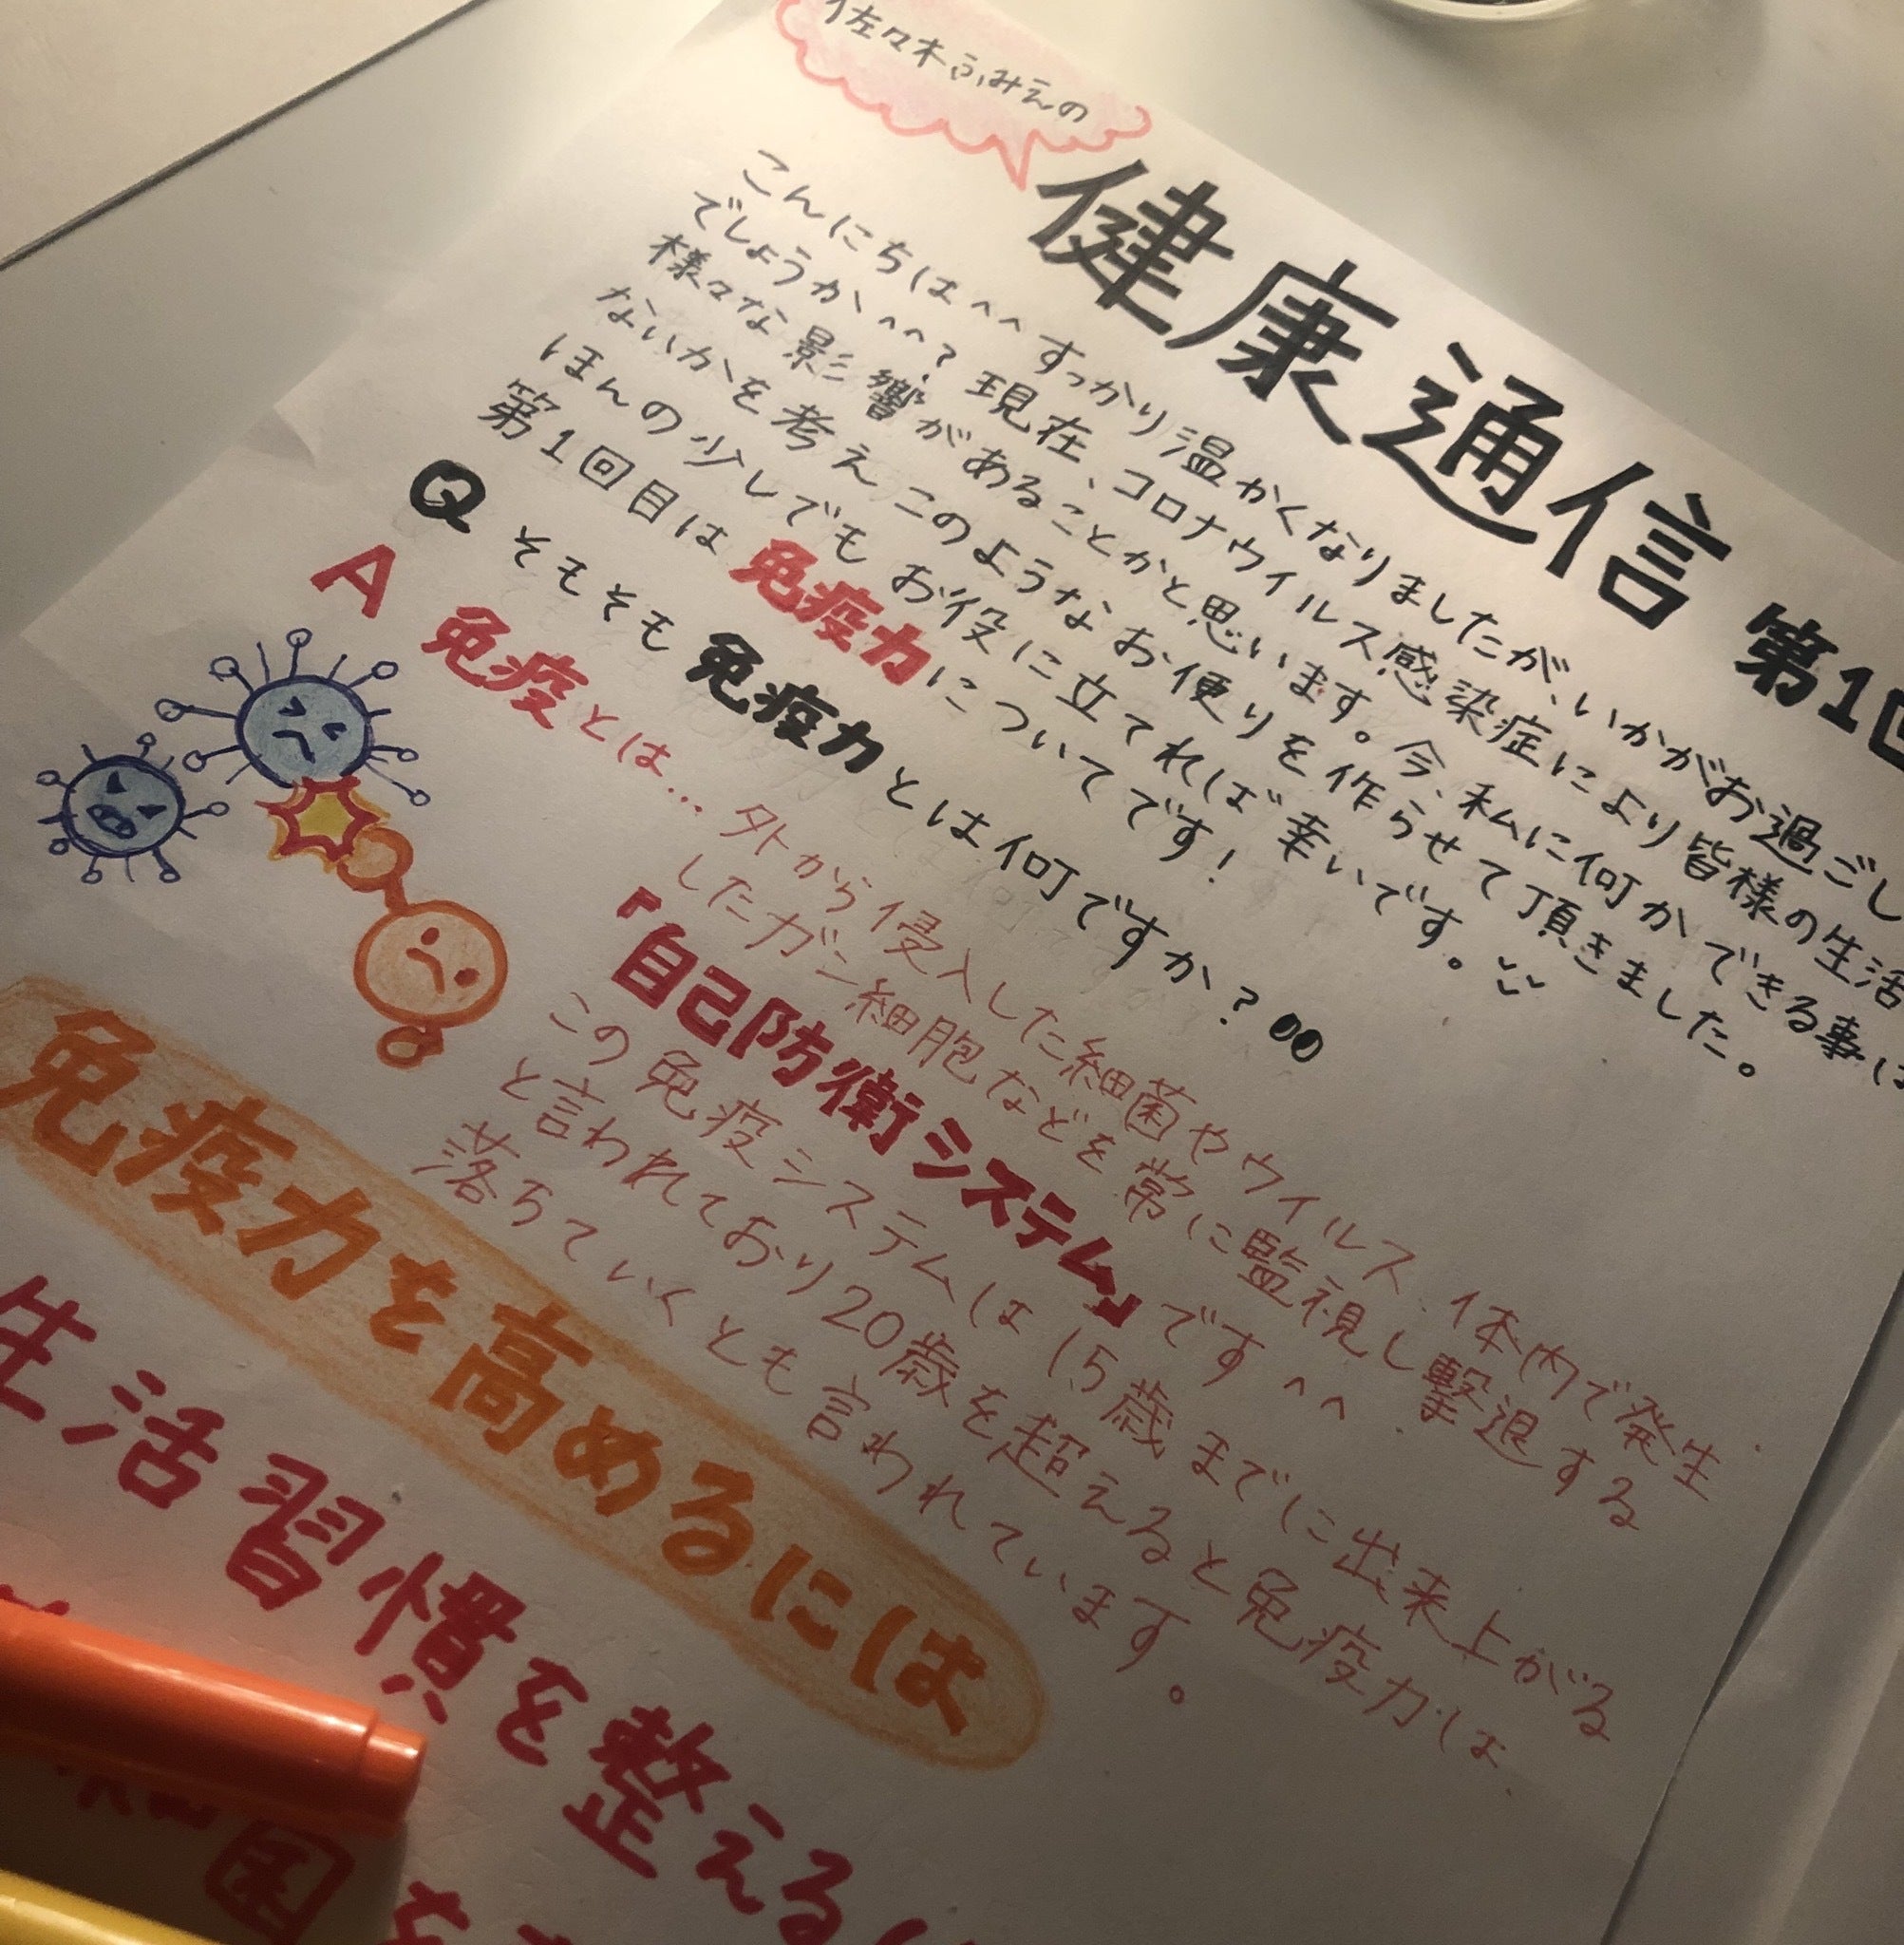 佐々木ふみえの
健康通信 第1回
こんにちは^^すっかり温かくなりましたが、いかがお過ごし
でしょうか^^?現在、コロナウイルス感染症により皆様の生活
様々な影響があることかと思います。今、私に何かできる事は
ないかを考えこのようなお便りを作らせて頂きました。
ほんの少しでもお役に立てれば幸いです。
第1回目は免疫力についてです!
Q そもそも免疫力とは何ですか?
A 免疫とは…外から侵入した細菌やウイルス、体内で発生
したガン細胞などを常に監視し撃退する
『自己防衛システム』です^^
この免疫システムは15歳までに出来上がる
と言われており20歳を超えると免疫力は、
落ちていくとも言われています。
免疫力を高めるには
生活習慣を整える
菌を